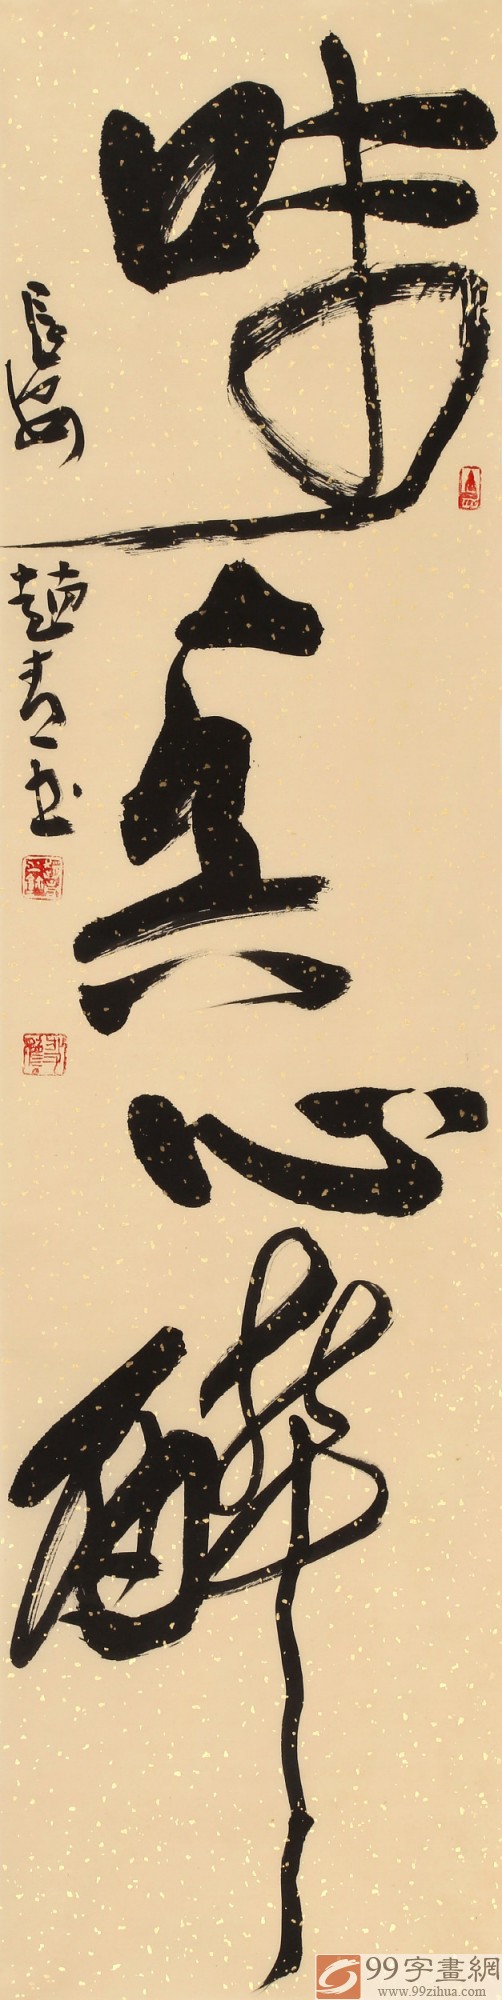 味真心醉
長安
趙青書
99字畫網
www.99zihua.com